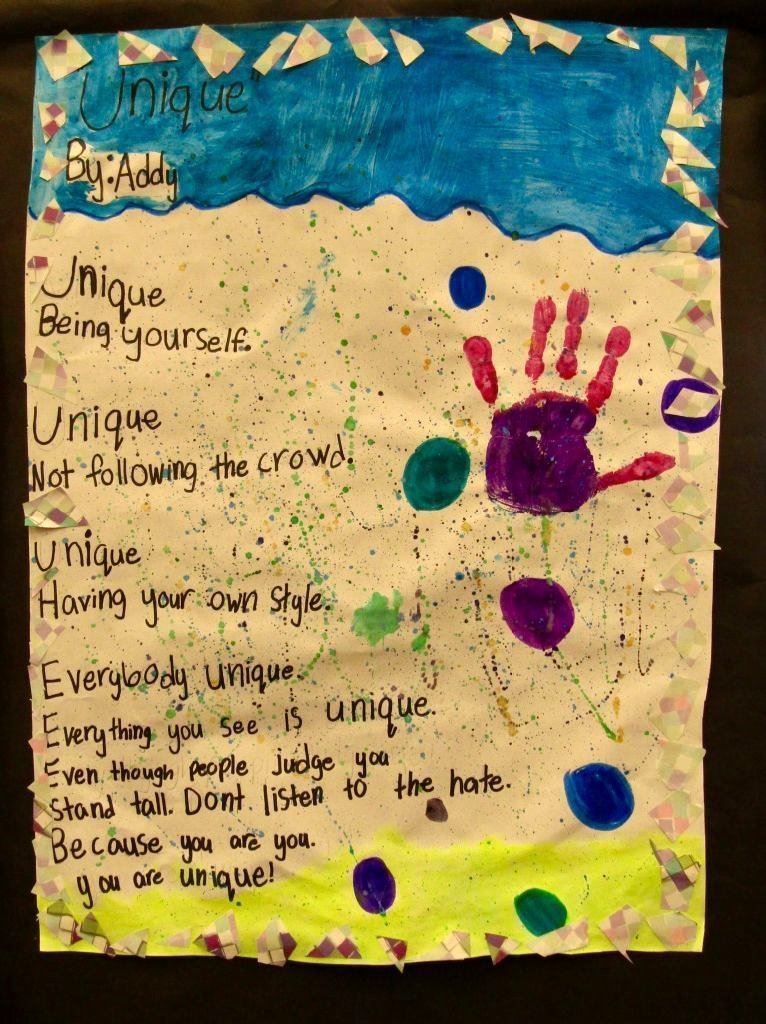 "Unique"
By: Addy
Unique
Being yourself.
Unique
Not following the crowd.
Unique
Having your own style.
Everybody unique.
Everything you see is unique.
Even though people judge you
stand tall. Dont listen to the hate.
Because you are you.
you are unique!